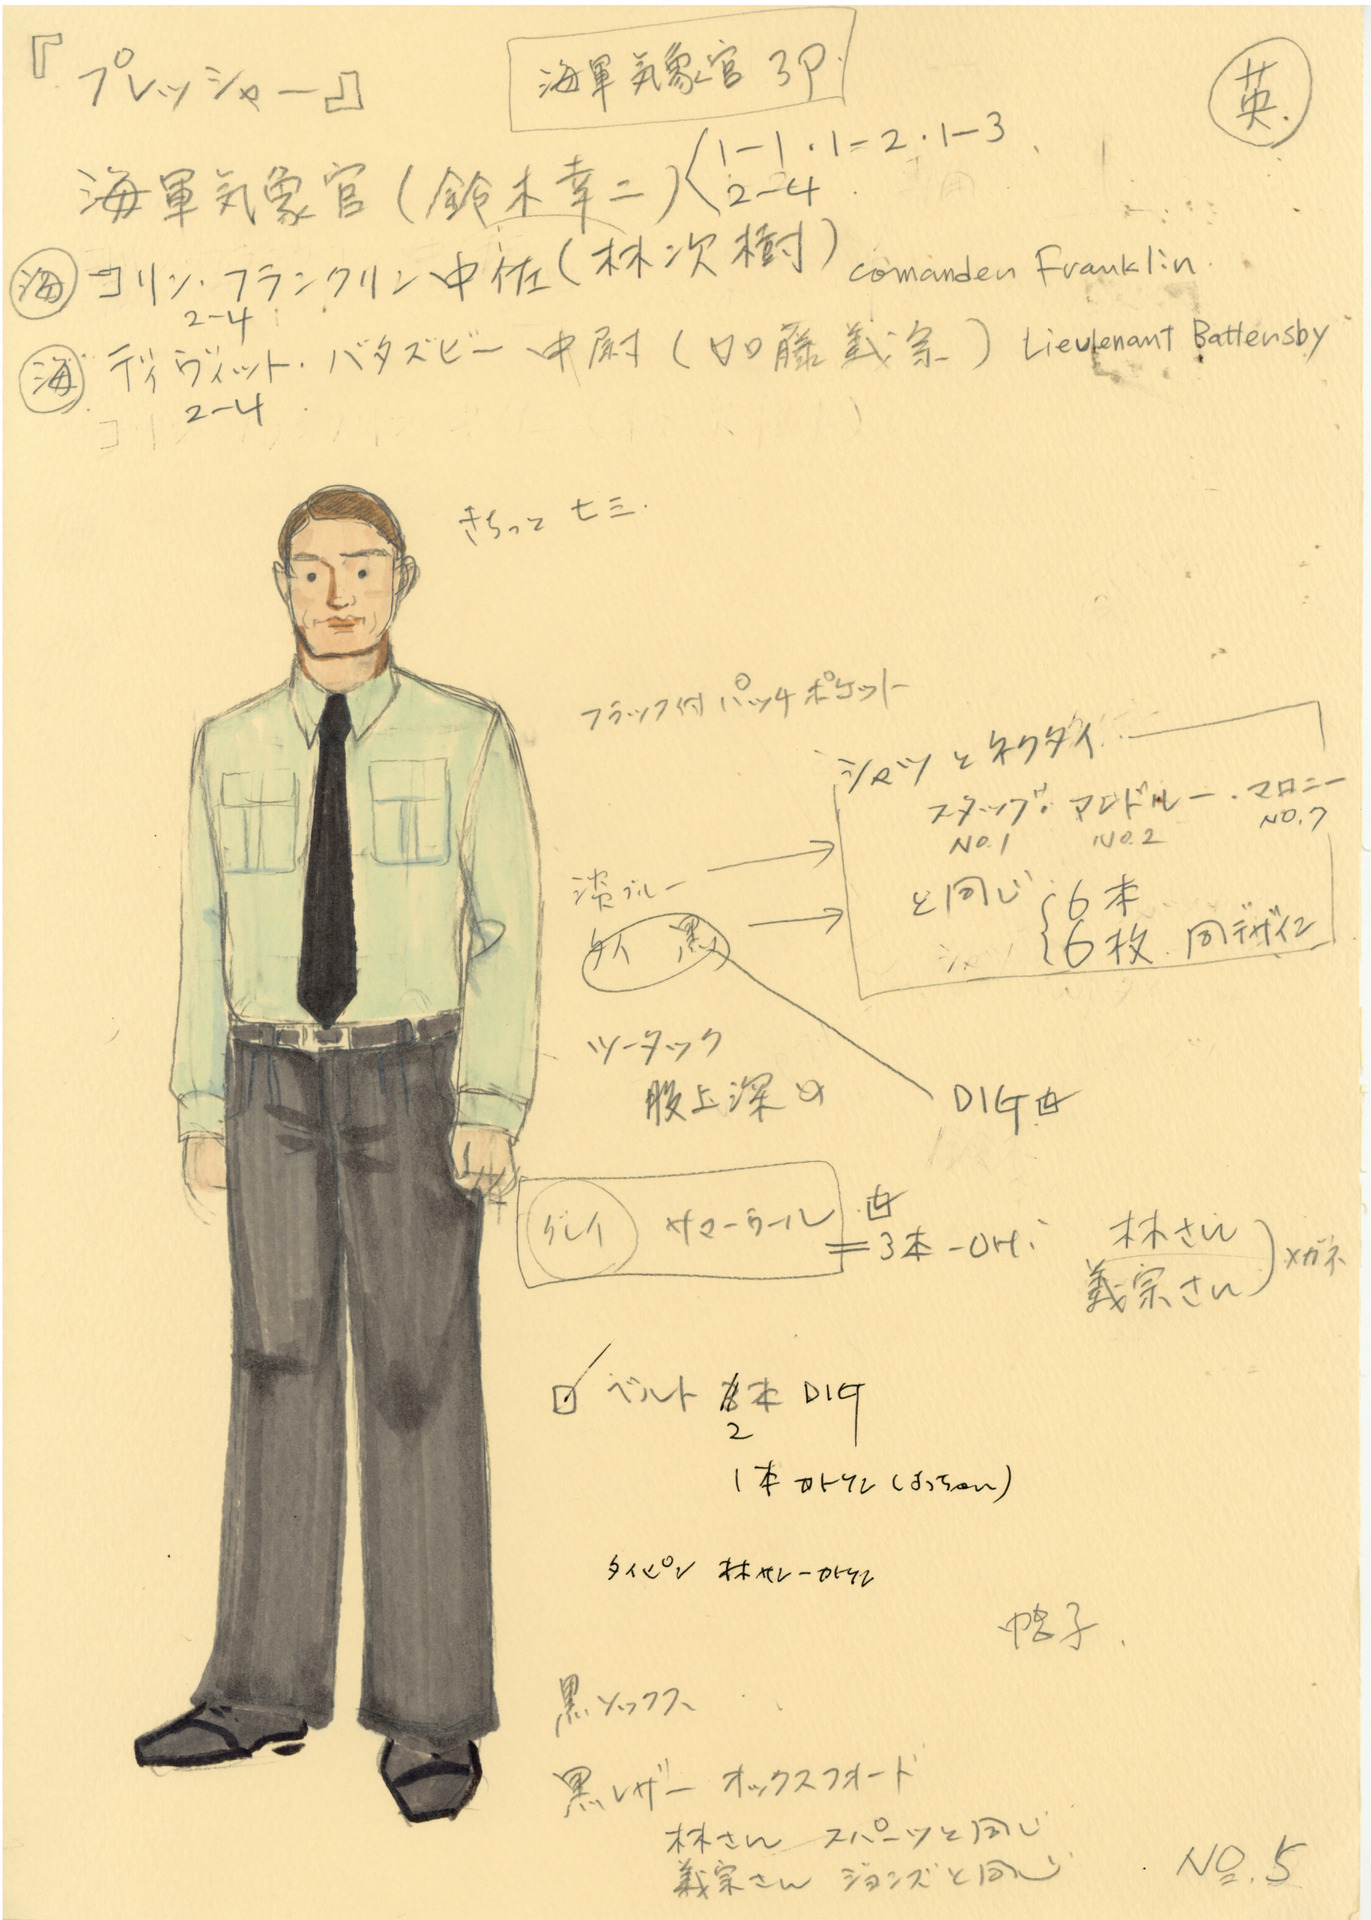 『プレッシャー』
海軍気象官 3P
英
海軍気象官(鈴木幸二)
1-1・1-2・1-3
2-4
海 コリン・フランクリン中佐(林次樹) comanden Franklin
2-4
海 ディヴィット・バタズビー 中尉(加藤義宗) Lieutenant Battensby
2-4
きちっと 七三.
フラップ付 パッチポケット
シャツとネクタイ
スタッグ・アンドルー・マロニー
NO.1 NO.2 NO.7
と同じ 6本
シャツ 6枚 同デザイン
淡ブルー
タイ 黒
ツータック
股上深め
DIG
グレイ サマーウール
=3本-OH
林さん
義宗さん
メガネ
ベルト 本 DIG
2
1本 カトリン
タイピン 林 カトリン
帽子.
黒ソックス
黒レザー オックスフォード
林さん スパーツと同じ
義宗さん ジョンズと同じ
NO.5